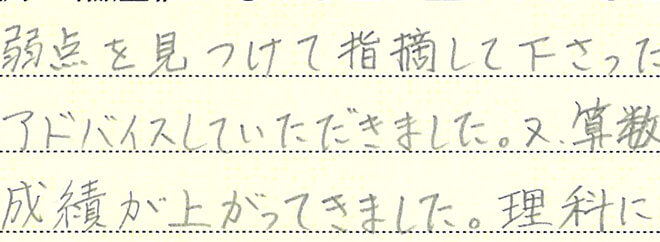 弱点を見つけて指摘して下さった
アドバイスしていただきました。又、算数
成績が上がってきました。理科に